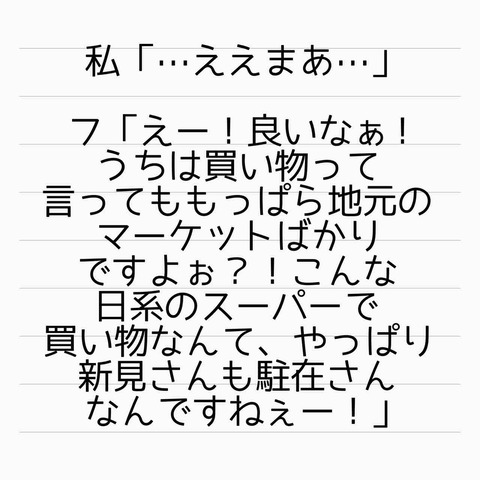 私「…ええまあ…」
フ「えー！良いなぁ！
うちは買い物って
言ってももっぱら地元の
マーケットばかり
ですよぉ？！こんな
日系のスーパーで
買い物なんて、やっぱり
新見さんも駐在さん
なんですねぇー！」